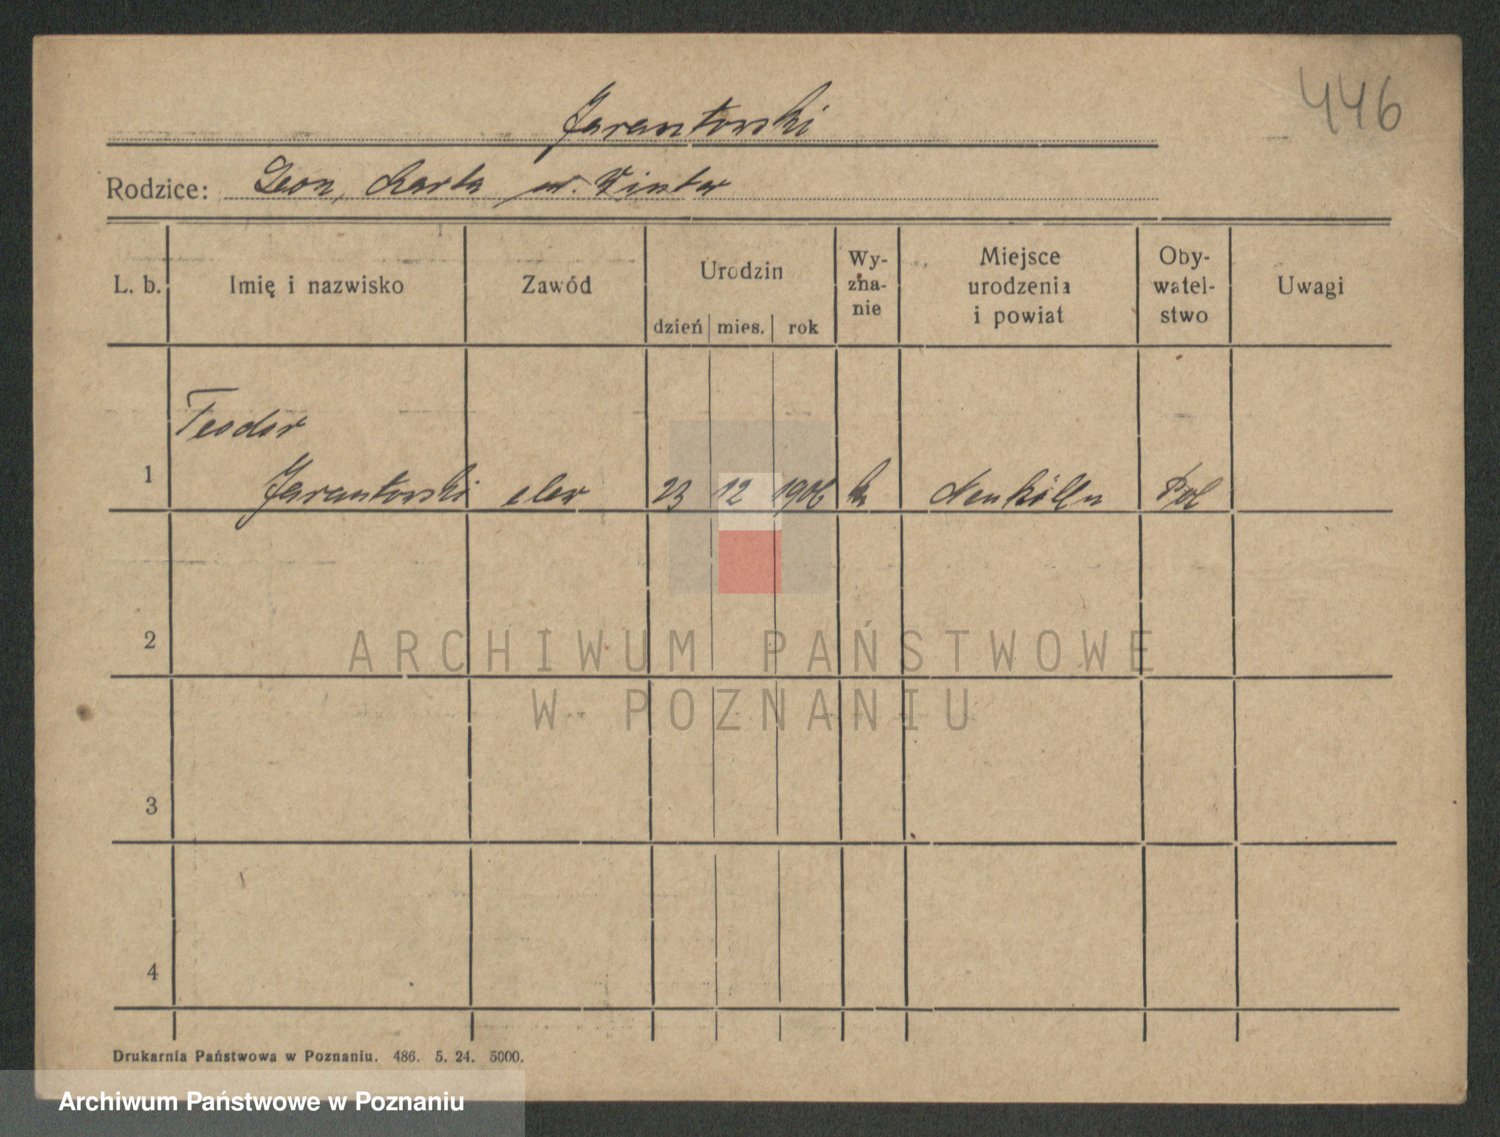 446
Jarantowski
Rodzice: Leon, Marta ur. Winter
L. b. Imię i nazwisko Zawód Urodzin dzień mies. rok Wy-zna-nie Miejsce urodzenia i powiat Oby-watel-stwo Uwagi
Teodor
1 Jarantowski elew 23 12 1906 k Neukölln Pol
2
3
4
ARCHIWUM PAŃSTWOWE
W POZNANIU
Drukarnia Państwowa w Poznaniu. 486. 5. 24. 5000.
Archiwum Państwowe w Poznaniu